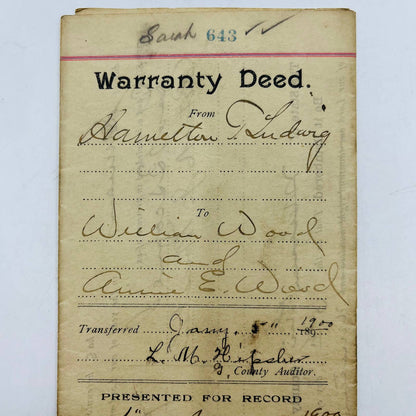 Sarah 643
Warranty Deed.
From
Hamelton T Ludwig
To
William Wood
and
Annie E. Wood
Transferred Jany. 5" 1900 189
L. M.
County Auditor.
PRESENTED FOR RECORD
1900